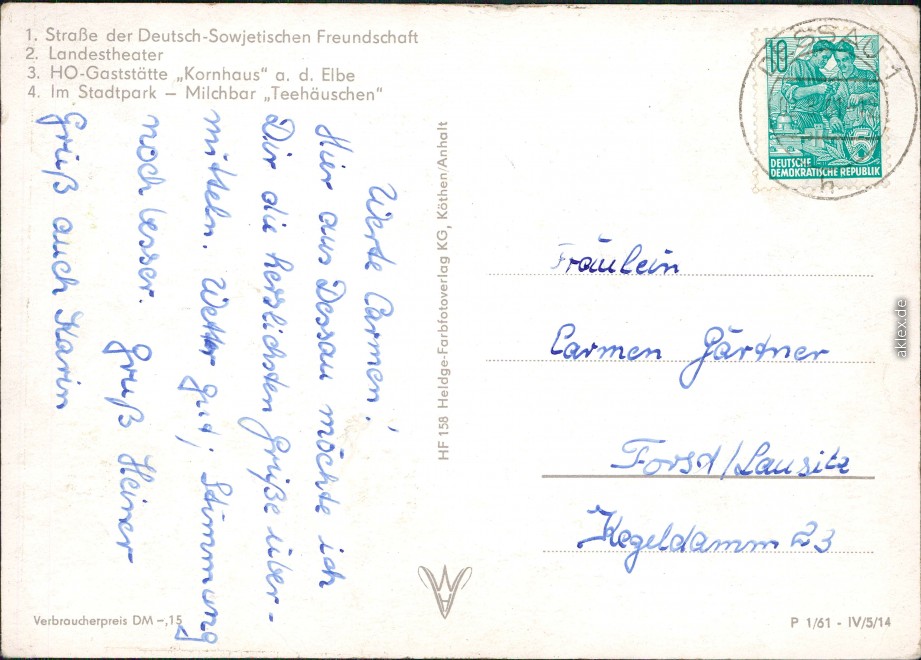 1. Straße der Deutsch-Sowjetischen Freundschaft
2. Landestheater
3. HO-Gaststätte „Kornhaus" a. d. Elbe
4. Im Stadtpark – Milchbar „Teehäuschen"
Werte Carmen!
Hier aus Dessau möchte ich
Dir die herzlichsten Grüße über-
mitteln. Wetter gut, Stimmung
noch besser. Gruß Heiner
Gruß auch Karin
Verbraucherpreis DM –,15
HF 158 Heldge-Farbfotoverlag KG, Köthen/Anhalt
10
DEUTSCHE
DEMOKRATISCHE REPUBLIK
DESSAU 1
h
Fräulein
Carmen Gärtner
Forst/Lausitz
Kegeldamm 23
P 1/61 - IV/5/14
aklex.de